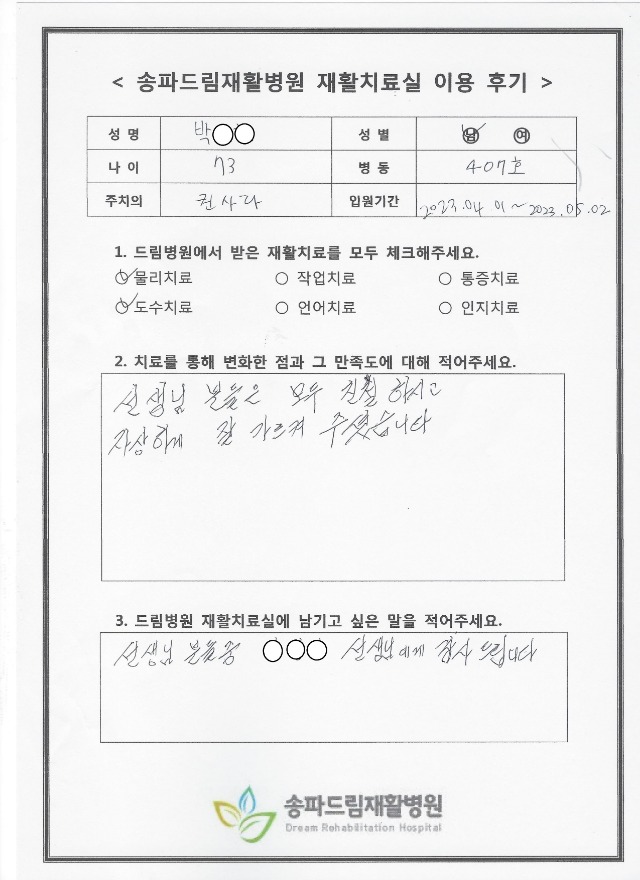 < 송파드림재활병원 재활치료실 이용 후기 >
성 명 박○○ 성 별 남 여
나 이 73 병 동 407호
주치의 권사라 입원기간 2023.04 01~2023.05.02
1. 드림병원에서 받은 재활치료를 모두 체크해주세요.
물리치료 ○ 작업치료 ○ 통증치료
도수치료 ○ 언어치료 ○ 인지치료
2. 치료를 통해 변화한 점과 그 만족도에 대해 적어주세요.
선생님 분들은 모두 친절하시고
자상하게 잘 가르켜 주셨습니다
3. 드림병원 재활치료실에 남기고 싶은 말을 적어주세요.
선생님 분들중 ○○○ 선생님에게 감사 드립니다
송파드림재활병원
Dream Rehabilitation Hospital